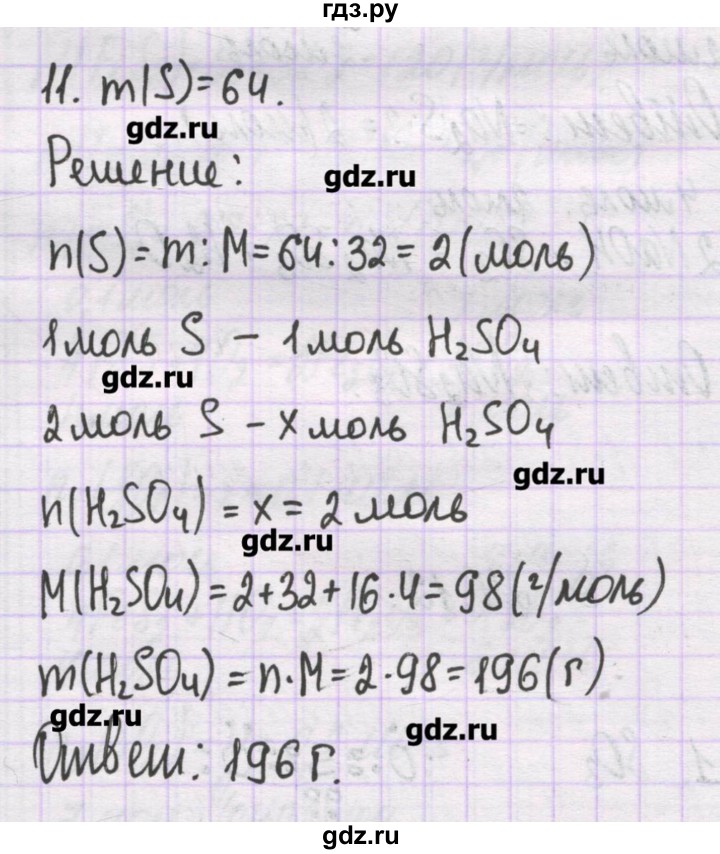 гдз.ру
11. m(S)=64.
gdz.ru
Решение:
gdz.ru
n(S)=m:M=64:32=2(моль)
1 моль S – 1 моль H₂SO₄
gdz.ru
2 моль S – x моль H₂SO₄
gdz.ru
n(H₂SO₄)=x=2 моль
gdz.ru
M(H₂SO₄)=2+32+16·4=98(г/моль)
m(H₂SO₄)=n·M=2·98=196(г)
gdz.ru
gdz.ru
Ответ: 196 г.
gdz.ru